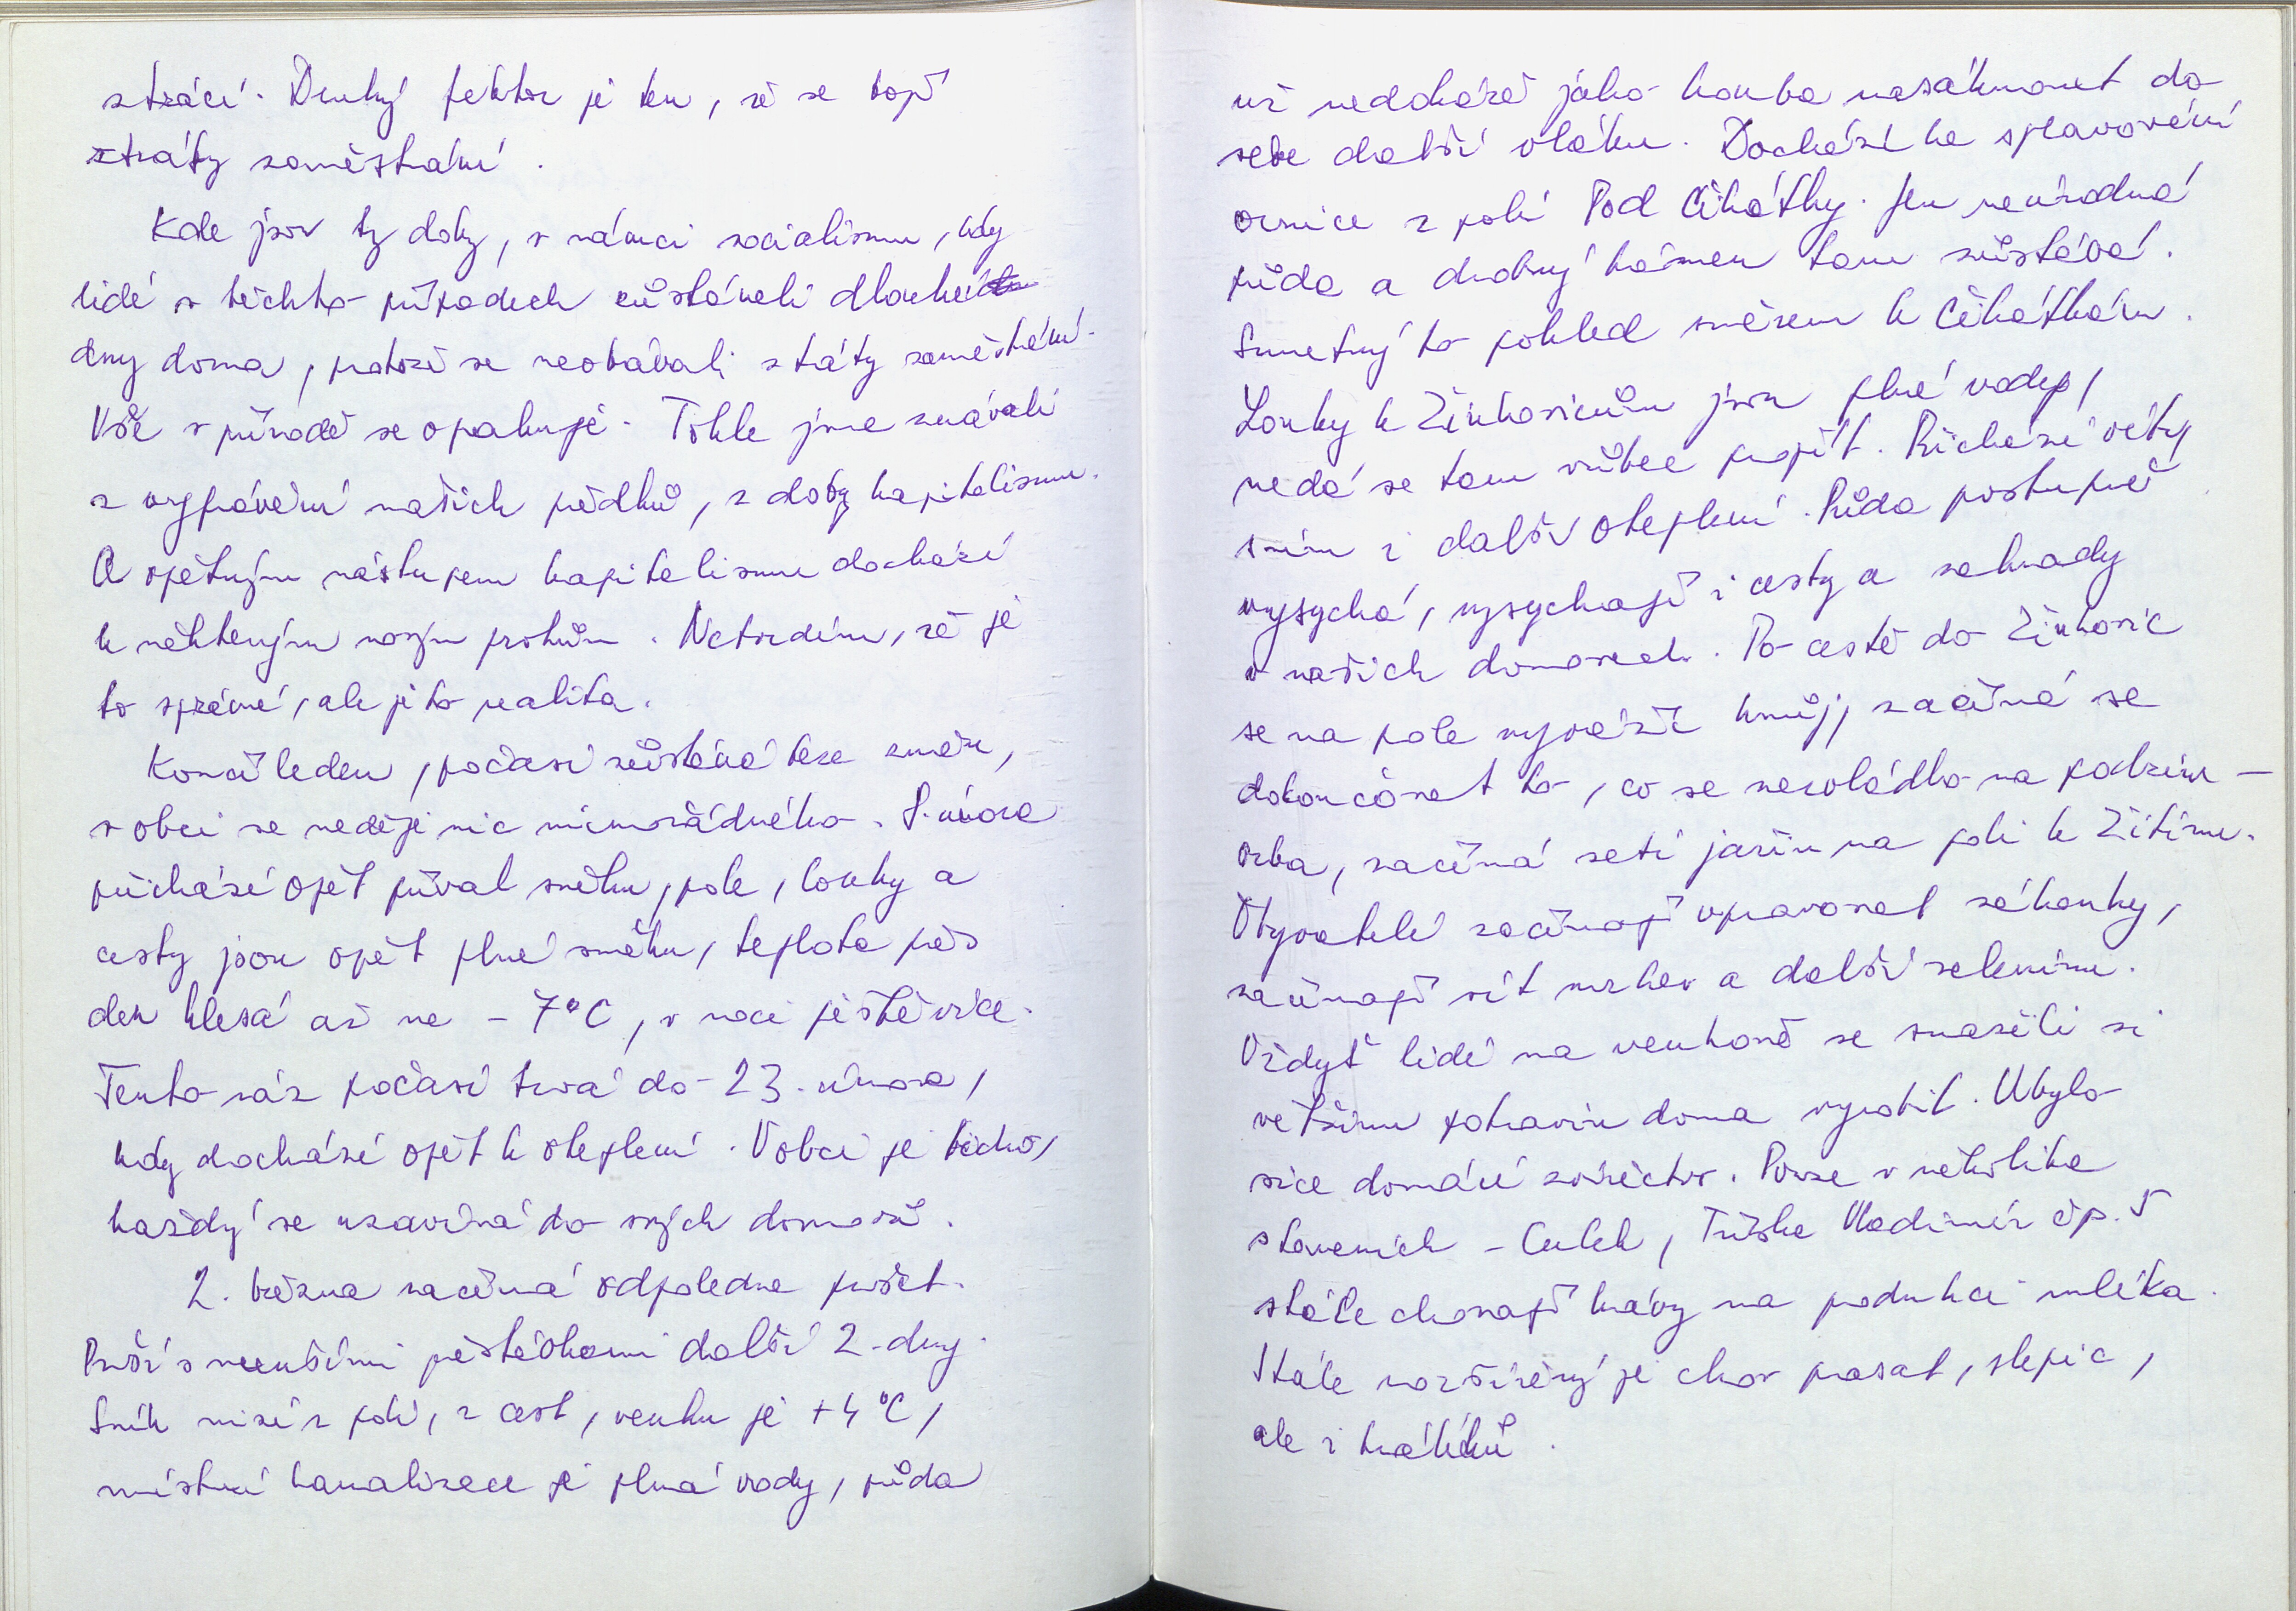 ztrácí. Druhý faktor je ten, že se bojí
ztráty zaměstnání.
Kde jsou ty doby, v rámci socialismu, kdy
lidé v těchto případech zůstávali dlouhé
dny doma, protože se neobávali ztáty zaměstnání.
Vše v přírodě se opakuje. Tohle jsme znávali
z vyprávění našich předků, z doby kapitalismu.
A opětným nástupem kapitalismu dochází
k některým novým prvkům. Netvrdím, že je
to správné, ale je to realita.
Končí leden, počasí zůstává beze změn,
v obci se neděje nic mimořádného. 8. února
přichází opět příval sněhu, pole, louky a
cesty jsou opět plné sněhu, teplota přes
den klesá až na - 7°C, v noci ještě více.
Tento ráz počasí trvá do 23. února,
kdy dochází opět k oteplení. V obci je ticho,
každý se uzavírá do svých domovů.
2. března začíná odpoledne pršet.
Prší s menšími přestávkami další 2 dny.
Sníh mizí z polí, z cest, venku je +4°C,
místní kanalizace je plná vody, půda
už nedokáže jako houba nasáknout do
sebe další vláhu. Dochází ke splavování
ornice z polí Pod Čihátky. Jen neúrodná
půda a drobný kámen tam zůstává.
Smutný to pohled směrem k Čihátkám.
Louky k Žinkovicům jsou plné vody,
nedá se tam vůbec projít. Přichází větry
s ním i další oteplení. Půda postupně
vysychá, vysychají i cesty a zahrady
v našich domovech. Po cestě do Žinkovic
se na pole vyváží hnůj, začíná se
dokončovat to, co se nezvládlo na podzim –
orba, začíná setí jařin na poli k Žitínu.
Obyvatelé začínají upravovat záhonky,
začínají sít mrkev a další zeleninu.
Vždyť lidé na venkově se snažili si
většinu potravin doma vyrobit. Ubylo
sice domácí zvířectvo. Pouze v několika
staveních - Culek, Tříska Vladimír čp. 5
stále chovají krávy na produkci mléka.
Stále rozšířený je chov prasat, slepic,
ale i králíků.